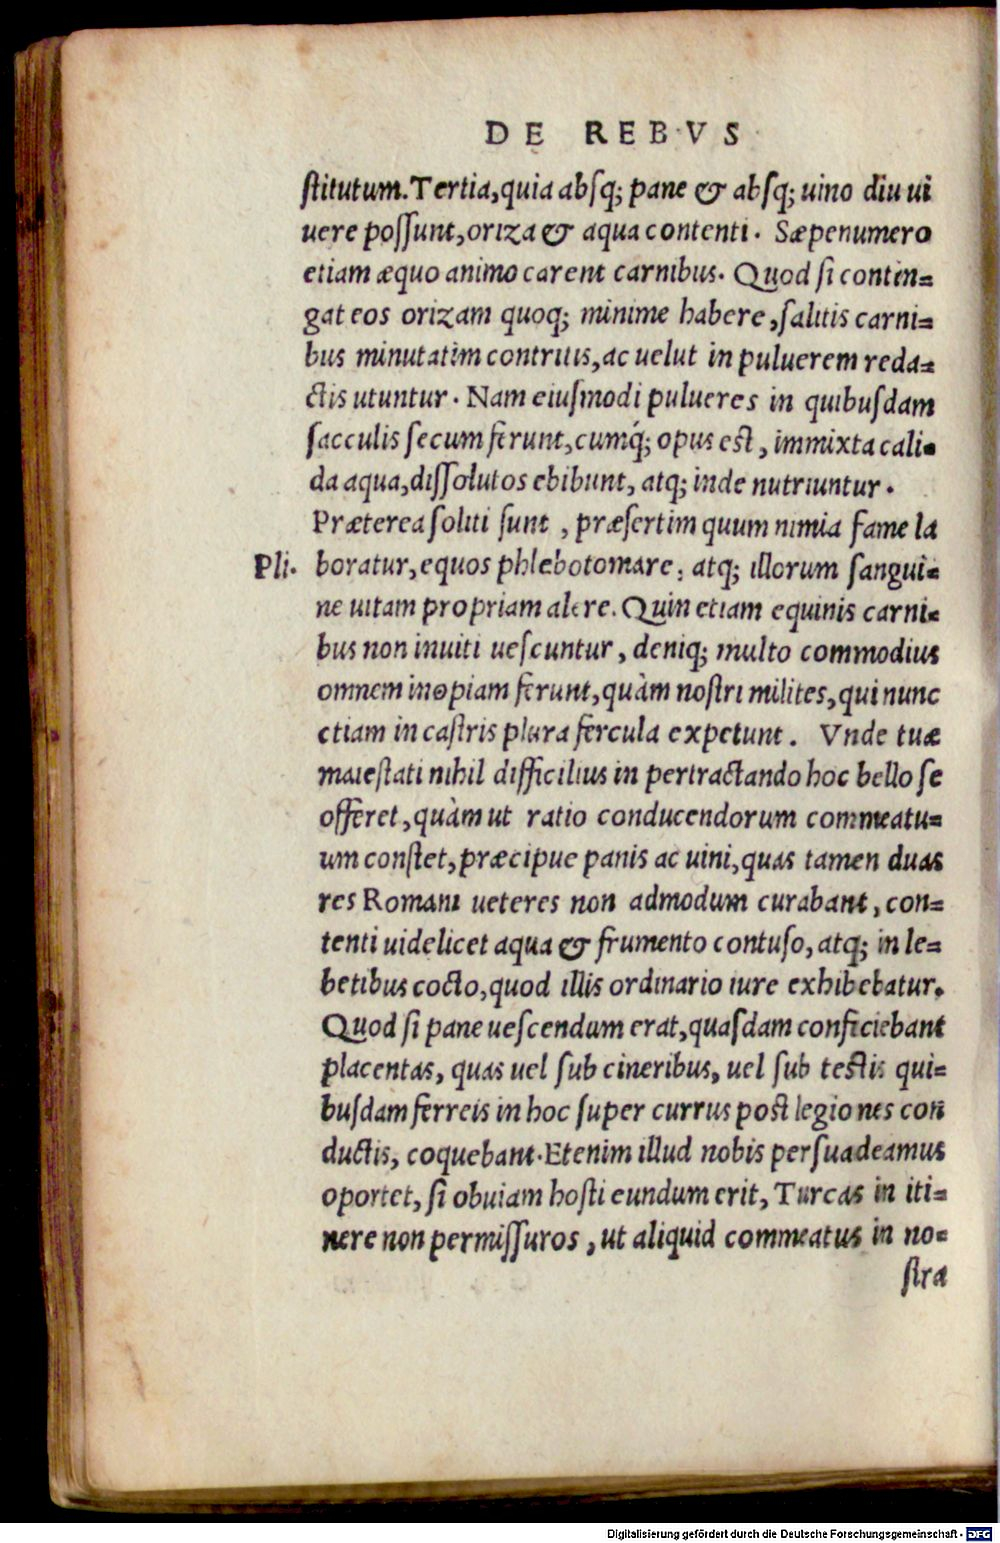 DE REBVS
ſtitutum. Tertia, quia abſq; pane & abſq; uino diu ui
uere poſſunt, oriza & aqua contenti. Sæpenumero
etiam æquo animo carent carnibus. Quod ſi contin=
gat eos orizam quoq; minime habere, ſalitis carni=
bus minutatim contritis, ac uelut in puluerem reda=
ctis utuntur. Nam eiuſmodi pulueres in quibuſdam
ſacculis ſecum ferunt, cumq́; opus eſt, immixta cali=
da aqua, diſſolutos ebibunt, atq; inde nutriuntur.
Præterea ſoliti ſunt, præſertim quum nimia fame la
Pli. boratur, equos phlebotomare, atq; illorum ſangui=
ne uitam propriam alere. Quin etiam equinis carni=
bus non inuiti ueſcuntur, deniq; multo commodius
omnem inopiam ferunt, quàm noſtri milites, qui nunc
etiam in caſtris plura fercula expetunt. Vnde tuæ
maieſtati nihil difficilius in pertractando hoc bello ſe
offeret, quàm ut ratio conducendorum commeatu=
um conſtet, præcipue panis ac uini, quas tamen duas
res Romani ueteres non admodum curabant, con=
tenti uidelicet aqua & frumento contuſo, atq; in le=
betibus cocto, quod illis ordinario iure exhibebatur.
Quod ſi pane ueſcendum erat, quaſdam conficiebant
placentas, quas uel ſub cineribus, uel ſub teſtis qui=
buſdam ferreis in hoc ſuper currus poſt legiones con
ductis, coquebant. Etenim illud nobis perſuadeamus
oportet, ſi obuiam hoſti eundum erit, Turcas in iti=
nere non permiſſuros, ut aliquid commeatus in no=
ſtra
Digitalisierung gefördert durch die Deutsche Forschungsgemeinschaft - DFG